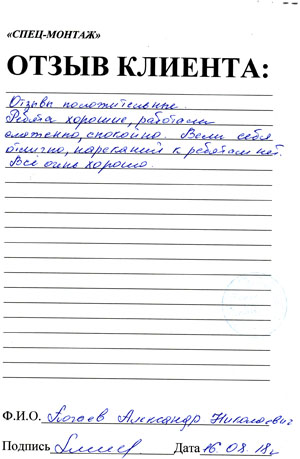 «СПЕЦ-МОНТАЖ»
ОТЗЫВ КЛИЕНТА:
Отзывы положительные.
Ребята хорошие, работали
слаженно, спокойно. Вели себя
отлично, нареканий к ребятам нет.
Всё очень хорошо.
Ф.И.О. Александр Николаевич
Подпись Дата 16.08.18г